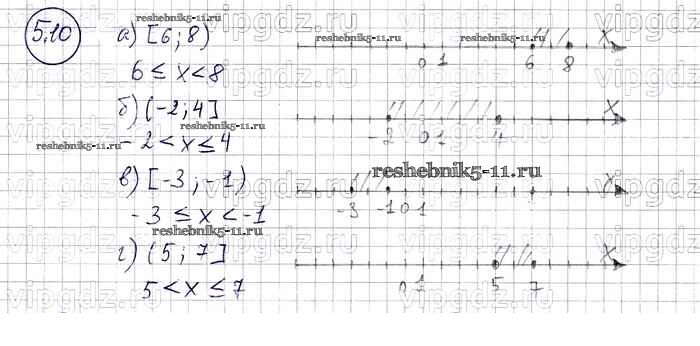 5.10
а) [6; 8)
6 ≤ x < 8
0 1 6 8 X
б) (-2; 4]
-2 < x ≤ 4
-2 0 1 4 X
в) [-3; -1)
-3 ≤ x < -1
-3 -1 0 1 X
г) (5; 7]
5 < x ≤ 7
0 1 5 7 X
reshebnik5-11.ru
reshebnik5-11.ru
reshebnik5-11.ru
reshebnik5-11.ru
reshebnik5-11.ru
reshebnik5-11.ru
reshebnik5-11.ru
vipgdz.ru
vipgdz.ru
vipgdz.ru
vipgdz.ru